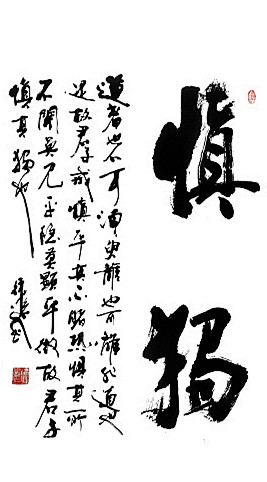 慎獨
道者也不可須臾離也可離非道也
是故君子戒慎乎其不睹恐懼其所
不聞莫見乎隱莫顯乎微故君子
慎其獨也